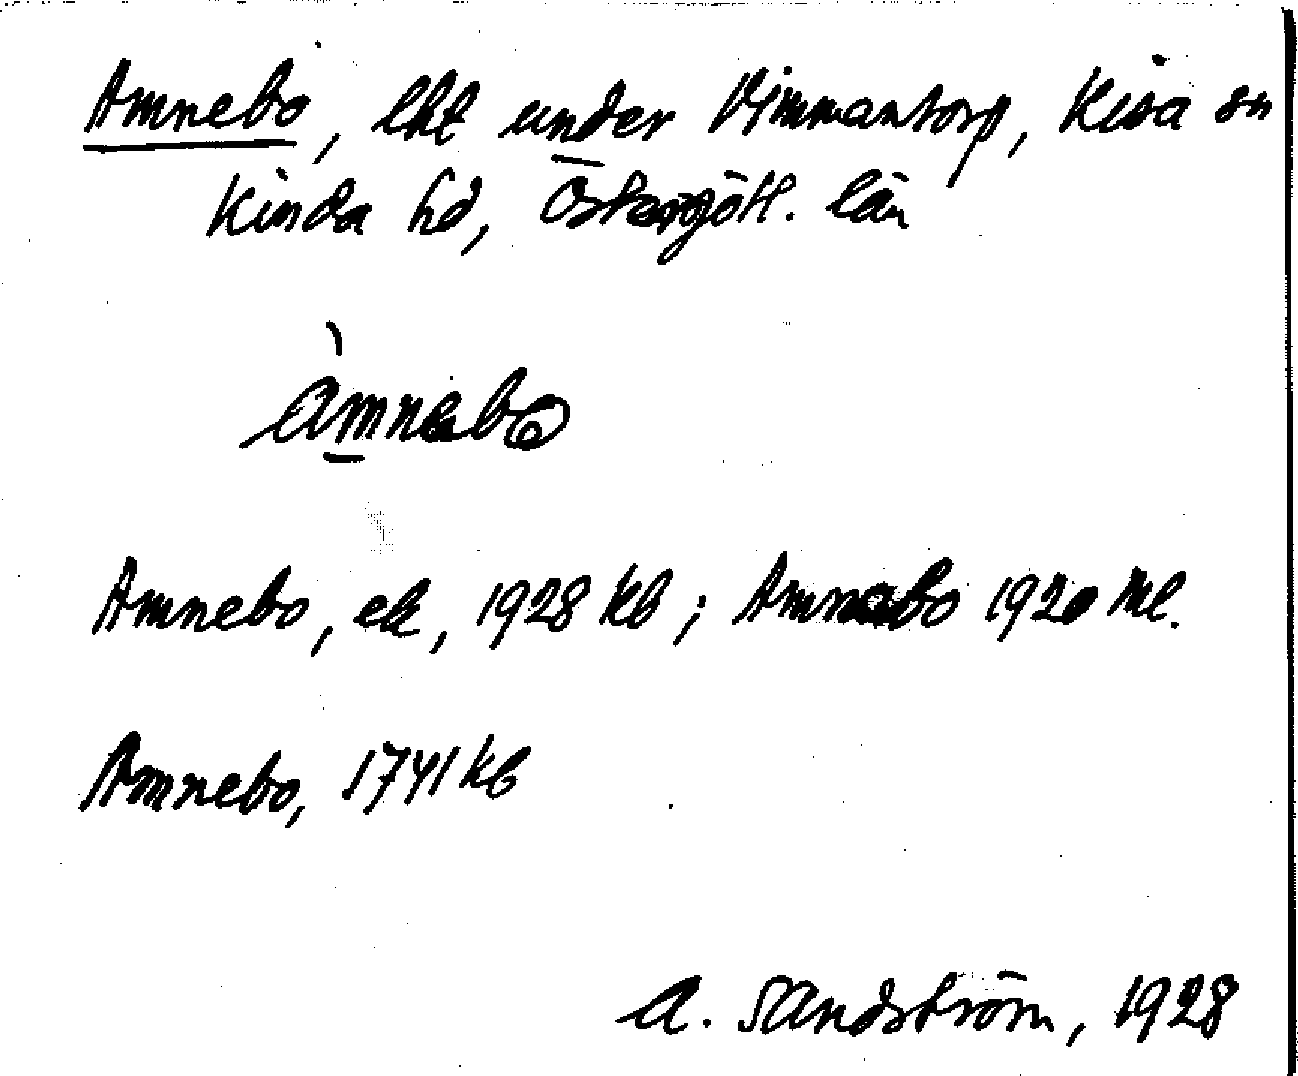 Amnebo, lht under Vimmantorp, Kisa sn
Kinda hd, Östergötl. län
àmnebo
Amnebo, ek, 1928 kb; Amnebo 1920 Ml.
Amnebo, 1741 kb
A. Sandström, 1928